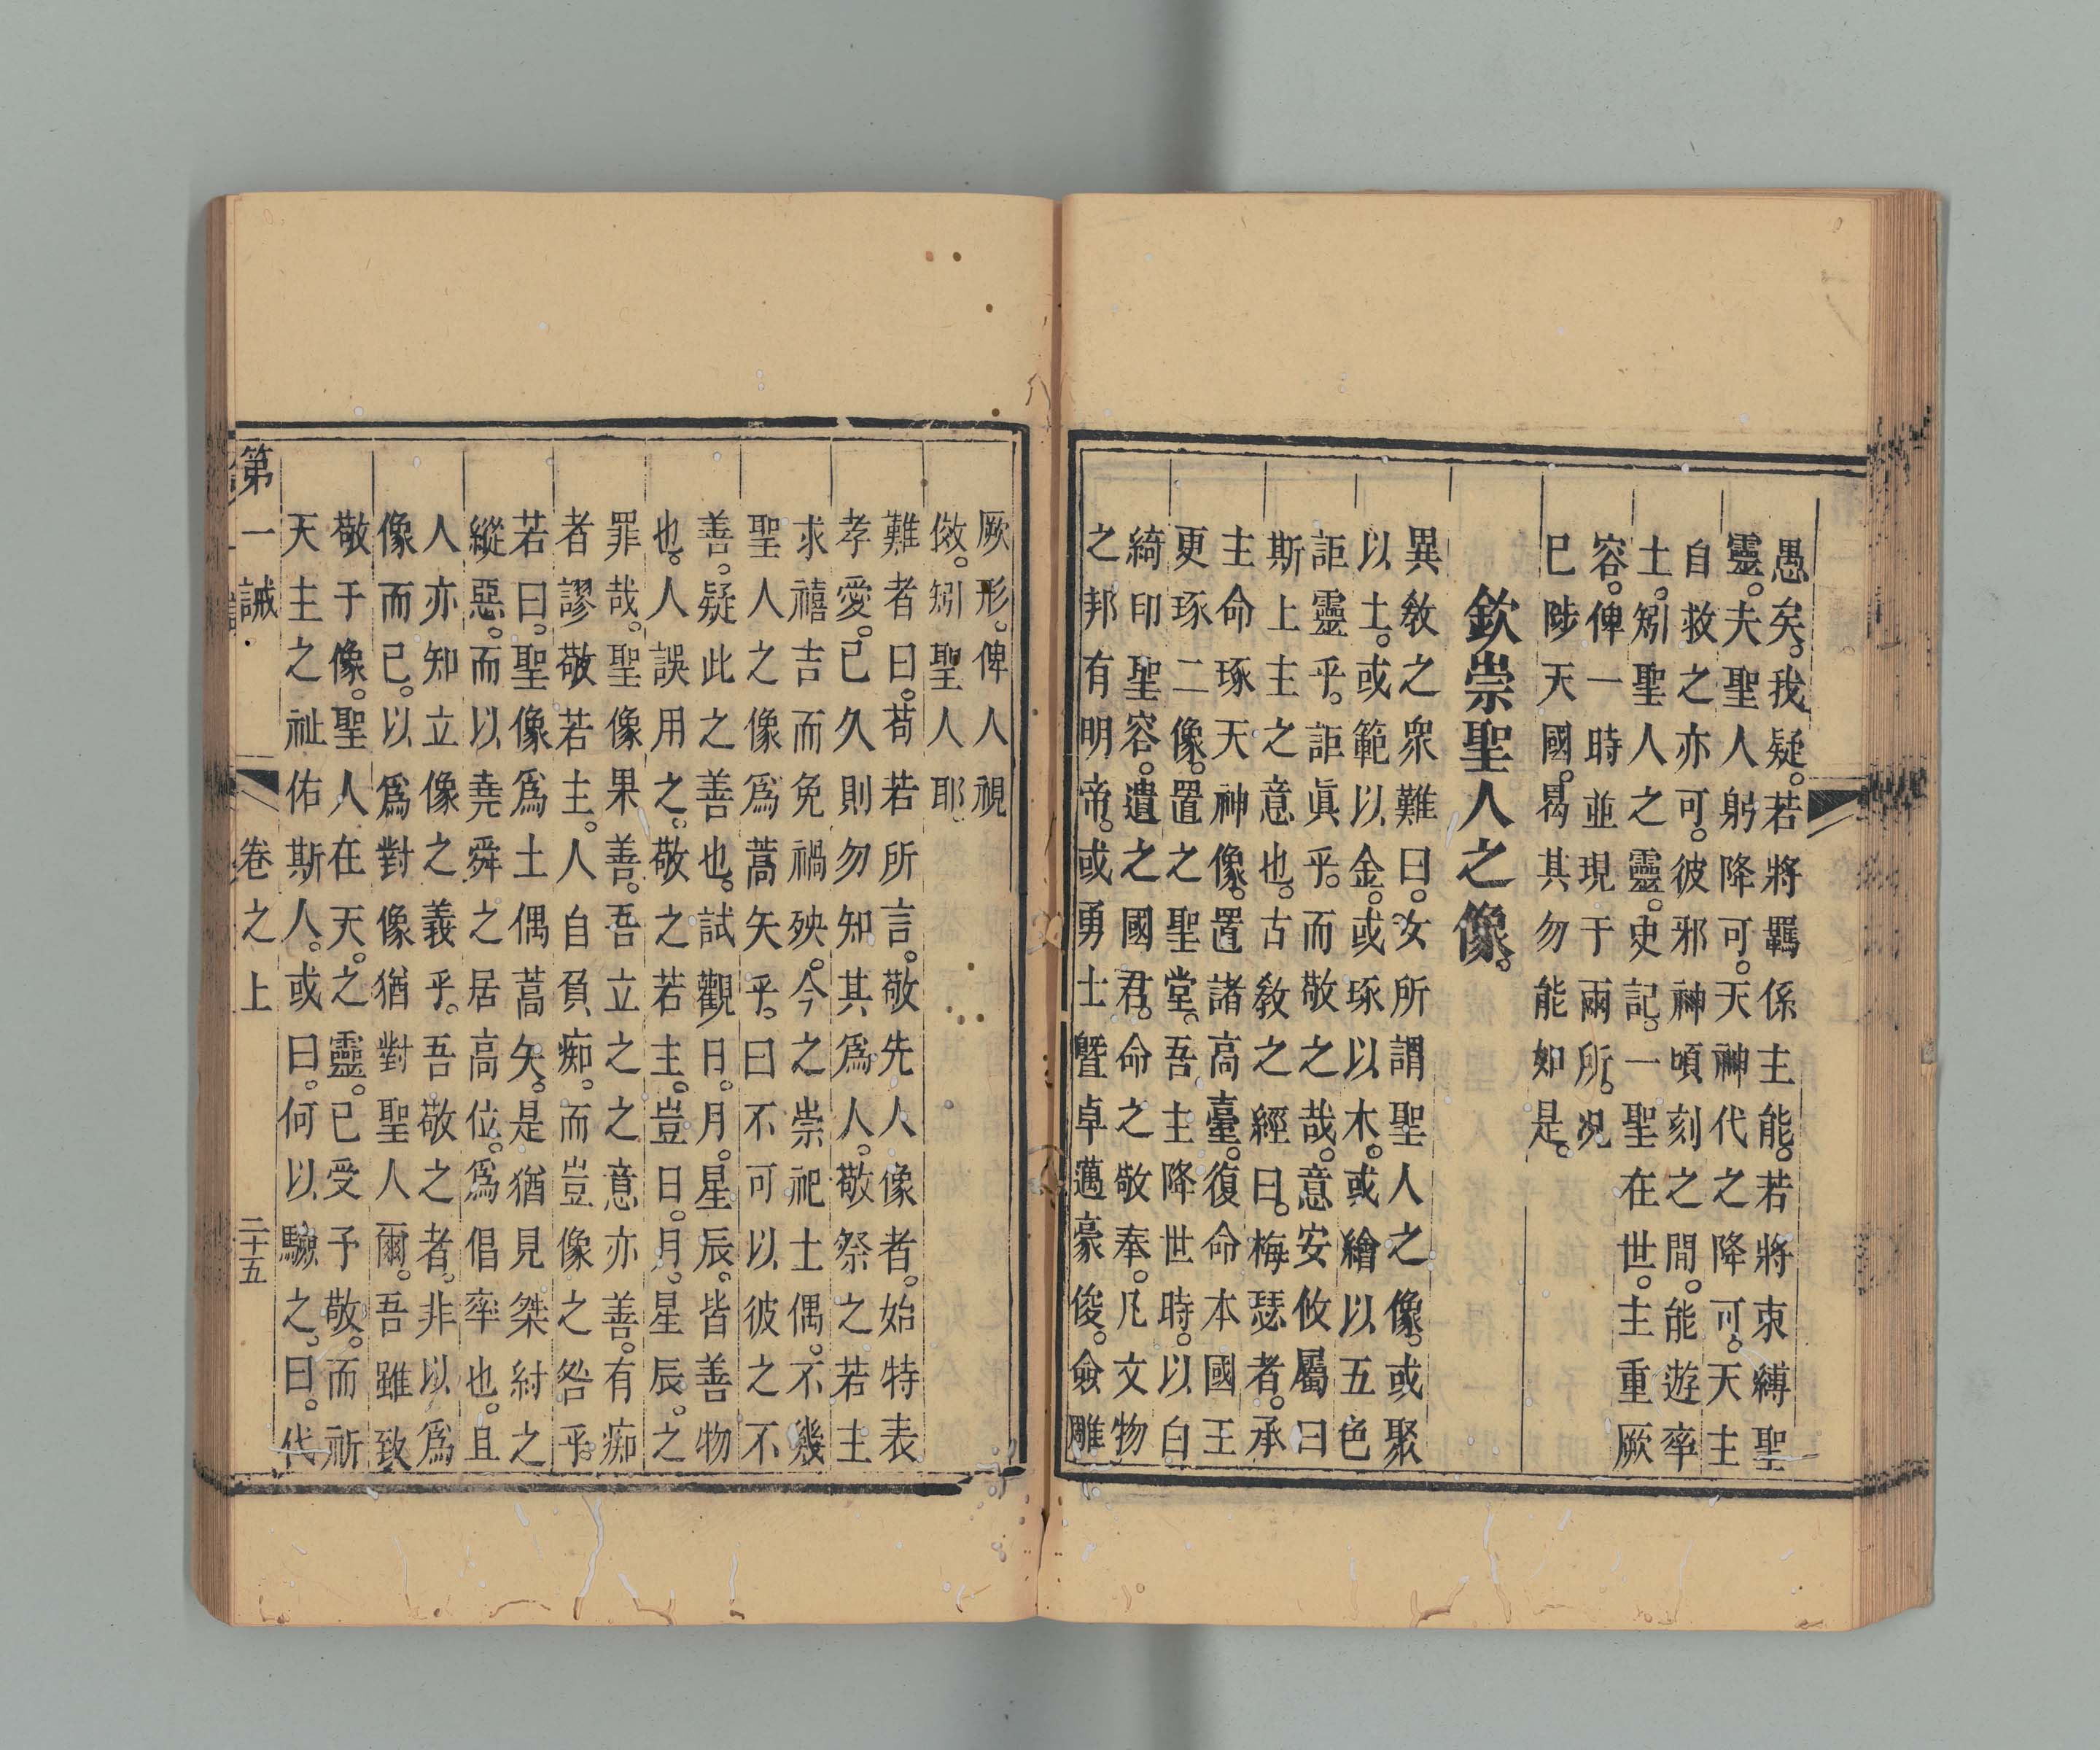 愚矣。我疑。若將羈係主能。若將束縛聖
靈。夫聖人躬降可。天神代之降可。天主
自救之亦可。彼邪神頃刻之間。能遊率
土。矧聖人之靈。史記。一聖在世。主重厥
容。俾一時並現于兩所。况
已陟天國。曷其勿能如是。
欽崇聖人之像。
異敎之衆難曰。女所謂聖人之像。或聚
以土。或範以金。或琢以木。或繪以五色
詎靈乎。詎眞乎。而敬之哉。意安攸屬曰
斯上主之意也。古敎之經曰。梅瑟者。承
主命琢天神像。置諸高臺。復命本國王
更琢二像。置之聖堂。吾主降世時。以白
綺印聖容。遺之國君。命之敬奉。凡文物
之邦有明帝。或勇士曁卓邁豪俊。僉雕
厥形。俾人視
倣。矧聖人耶
難者曰。苟若所言。敬先人像者。始特表
孝愛。已久則勿知其爲人。敬祭之若主
求禧吉而免禍殃。今之崇祀土偶。不幾
聖人之像爲蒿矢乎。曰不可以彼之不
善。疑此之善也。試觀日。月。星辰。皆善物
也。人誤用之。敬之若主。豈日。月。星辰。之
罪哉。聖像果善。吾立之之意亦善。有痴
者謬敬若主。人自負痴。而豈像之咎乎。
若曰。聖像爲土偶蒿矢。是猶見桀紂之
縱惡。而以堯舜之居高位。爲倡率也。且
人亦知立像之義乎。吾敬之者。非以爲
像而已。以爲對像猶對聖人爾。吾雖致
敬于像。聖人在天。之靈。已受予敬。而祈
天主之祉佑斯人。或曰。何以驗之。曰。代
第一誡 卷之上 二十五